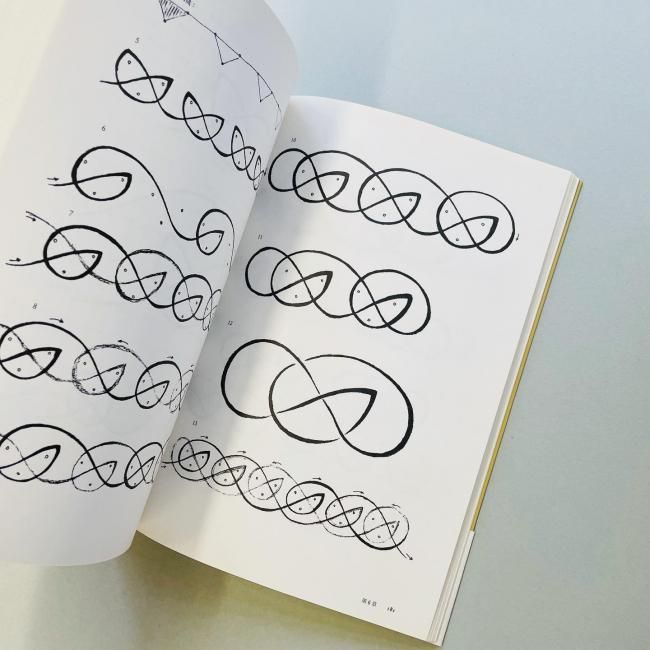 5
6
7
8
10
11
12
13
第6章 181